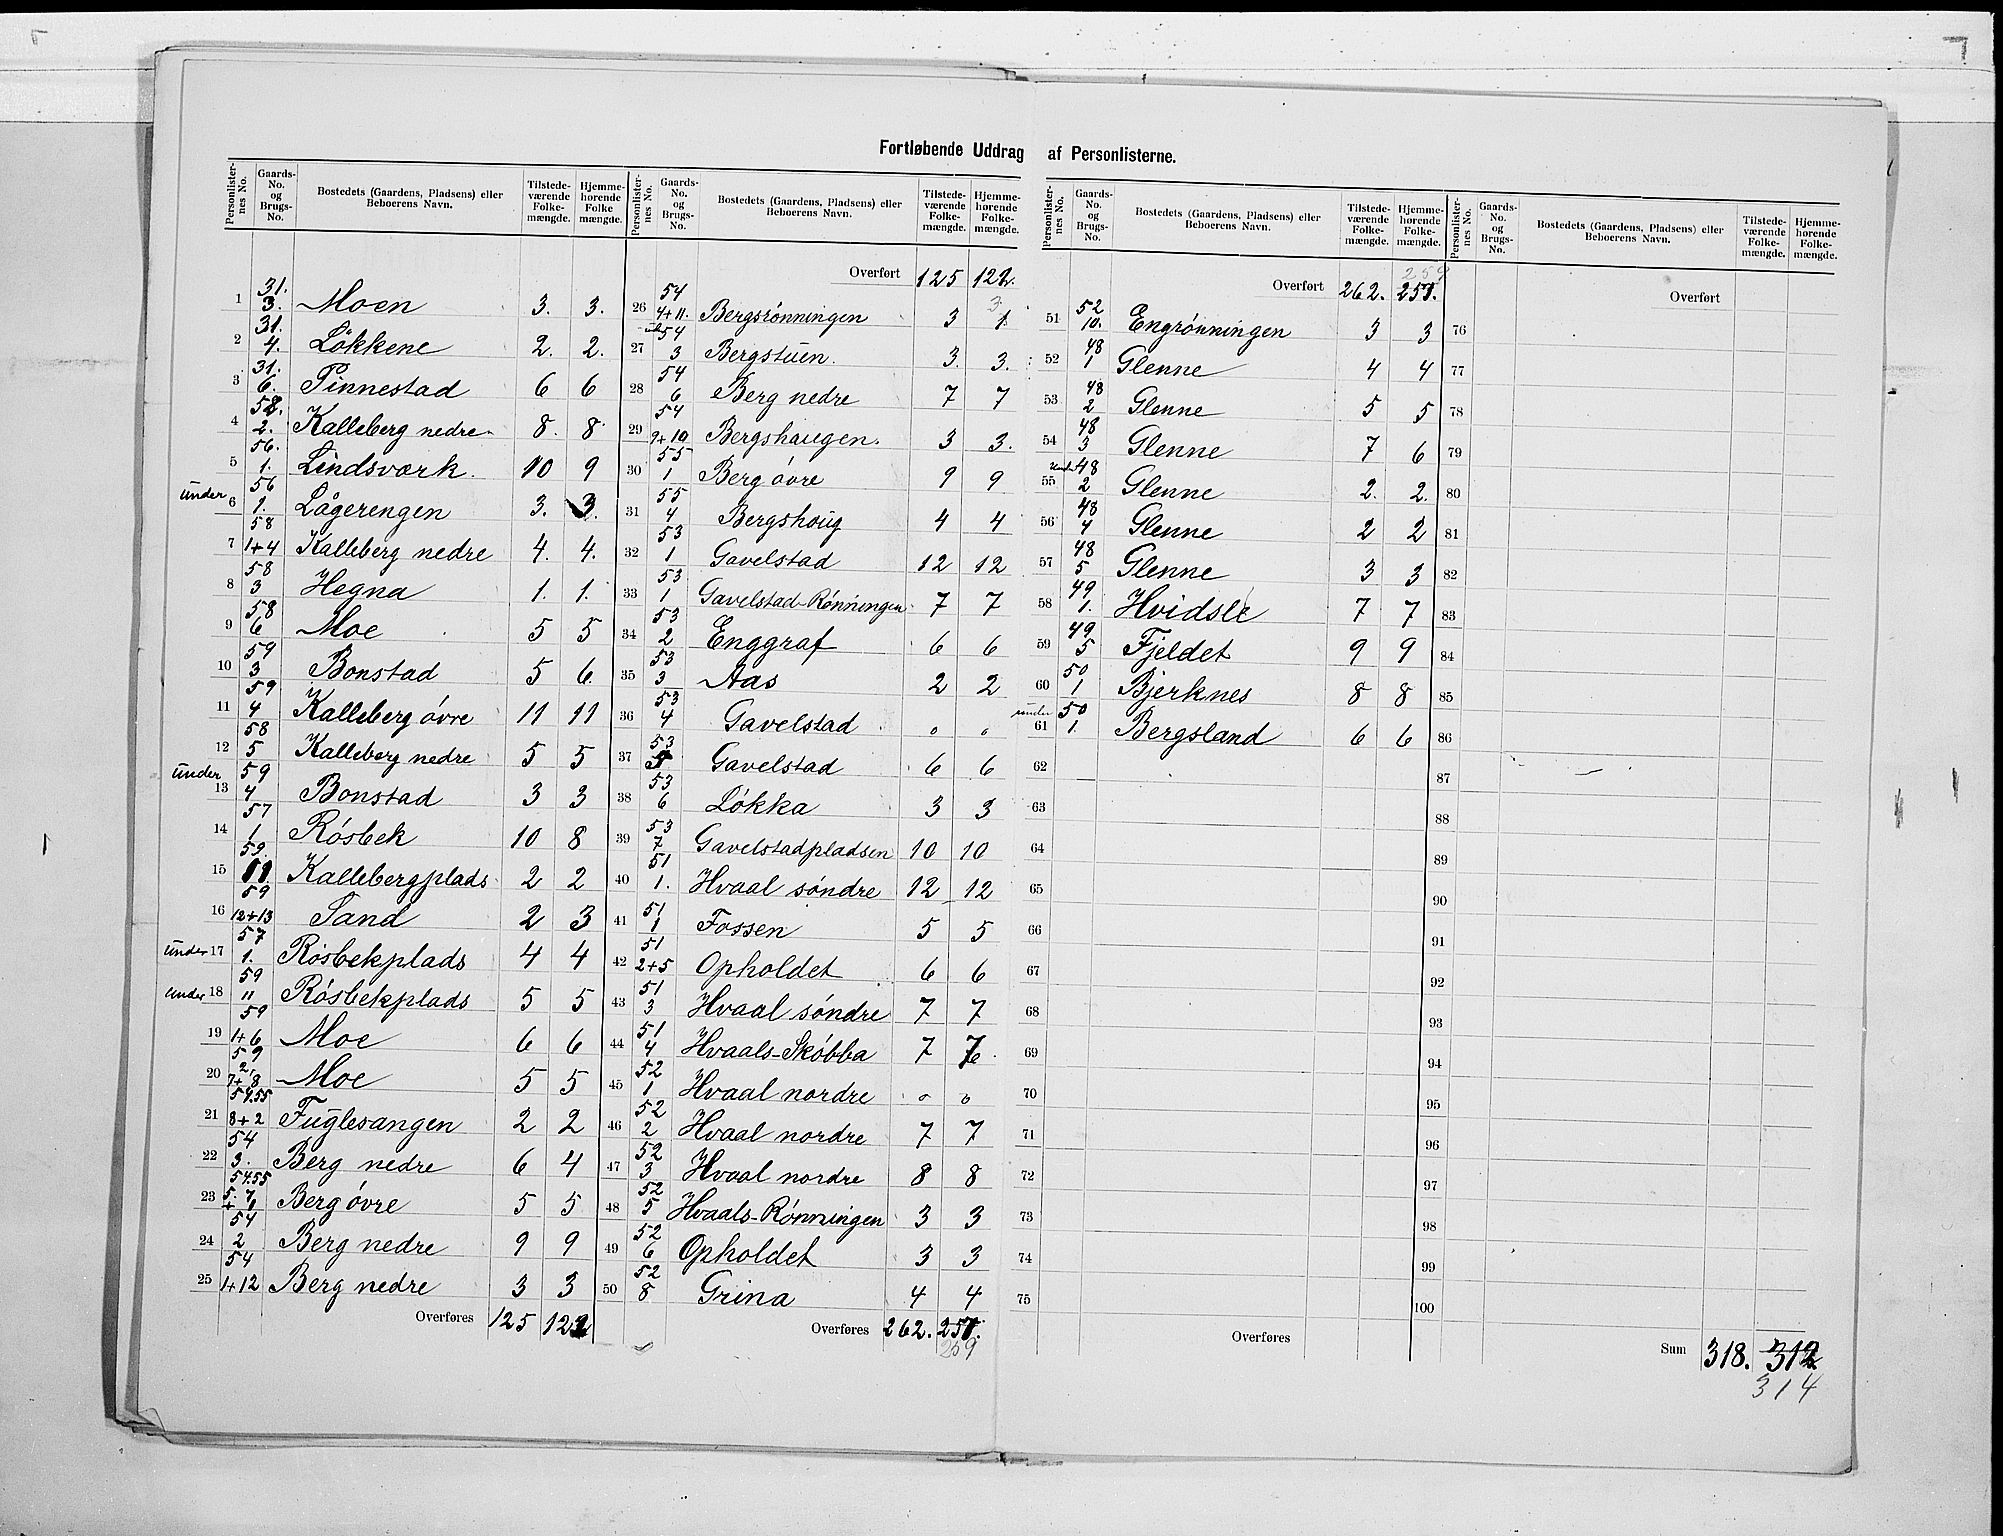 Fortløbende Uddrag af Personlisterne.
Personlister-nes No. | Gaards-No. og Brugs-No. | Bostedets (Gaardens, Pladsens) eller Beboerens Navn. | Tilstede-værende Folke-mængde. | Hjemme-hørende Folke mængde.
1 31. 3. Moen 3. 3.
2 31. 4. Løkkene 2. 2.
3 31. 6. Pinnestad 6 6
4 58. 2. Kalleberg nedre 8. 8
5 56. 1. Lindsværk. 10 9
under 6 56 1. Lågerengen 3. 3.
7 58 1+4 Kalleberg nedre 4. 4.
8 58 3 Hegna 1. 1.
9 58 6 Moe 5 5
10 59 3 Bonstad 5 6
11 59 4 Kalleberg øvre 11 11
12 58 5 Kalleberg nedre 5 5
under 13 59 4 Bonstad 3 3
14 57 1 Røsbek 10 8
15 59. 11 Kallebergplads 2 2
16 59 12+13 Sand 2 3
under 17 57 1. Røsbekplads 4 4
under 18 59 11 Røsbekplads 5 5
19 59 1+6 Moe 6 6
20 59 2, 7+8 Moe 5 5
21 54.55 8+2 Fuglesangen 2 2
22 54 3. Berg nedre 6 4
23 54.55 5. 7 + 6 Berg øvre 5 5
24 54 2 Berg nedre 9 9
25 54 1+12 Berg nedre 3 3
Overføres 125 122
Personlister-nes No. | Gaards-No. og Brugs-No. | Bostedets (Gaardens, Pladsens) eller Beboerens Navn. | Tilstede-værende Folke-mængde. | Hjemme-hørende Folke-mængde.
Overført 125 122.
26 54 4+11. Bergsrønningen 3 1 3
27 54 3 Bergstuen. 3. 3.
28 54 6 Berg nedre 7 7
29 54 9+10 Bergshaugen. 3 3.
30 55 1 Berg øvre 9 9
31 55 4 Bergshoug 4 4
32 53 1 Gavelstad 12 12
33 53 1 Gavelstad-Rønningen 7 7
34 53 2 Enggraf 6 6
35 53 3 Aas 2 2
36 53 4 Gavelstad 0 0
37 53 5 Gavelstad 6 6
38 53 6 Løkka 3 3
39 53 7 Gavelstadpladsen 10 10
40 51 1. Hvaal søndre 12 12
41 51 1 Fossen 5 5
42 51 2+5 Opholdet 6 6
43 51 3 Hvaal søndre 7 7
44 51 4 Hvaals-Skøbba 7 7
45 52 1 Hvaal nordre 0 0
46 52 2 Hvaal nordre 7 7
47 52 3 Hvaal nordre 8 8
48 52 5 Hvaals-Rønningen 3 3
49 52 6 Opholdet 3 3
50 52 8 Grina 4 4
Overføres 262. 257.
259
Personlister-nes No. | Gaards-No. og Brugs-No. | Bostedets (Gaardens, Pladsens) eller Beboerens Navn. | Tilstede-værende Folke-mængde. | Hjemme-hørende Folke-mængde.
259
Overført 262. 257.
51 52 10. Engrønningen 3 3
52 48 1 Glenne 4 4
53 48 2 Glenne 5 5
54 48 3 Glenne 7 6
under 55 48 2 Glenne 2. 2.
56 48 4 Glenne 2 2
57 48 5 Glenne 3 3
58 49 1. Hvidsle 7 7
59 49 5 Fjeldet 9 9
60 50 1 Bjerknes 8 8
under 61 50 1. Bergsland 6 6
62
63
64
65
66
67
68
69
70
71
72
73
74
75
Overføres
Personlister-nes No. | Gaards-No. og Brugs-No. | Bostedets (Gaardens, Pladsens) eller Beboerens Navn. | Tilstede-værende Folke-mængde. | Hjemme-hørende Folke-mængde.
Overført
76
77
78
79
80
81
82
83
84
85
86
87
88
89
90
91
92
93
94
95
96
97
98
99
100
Sum 318. 312
314